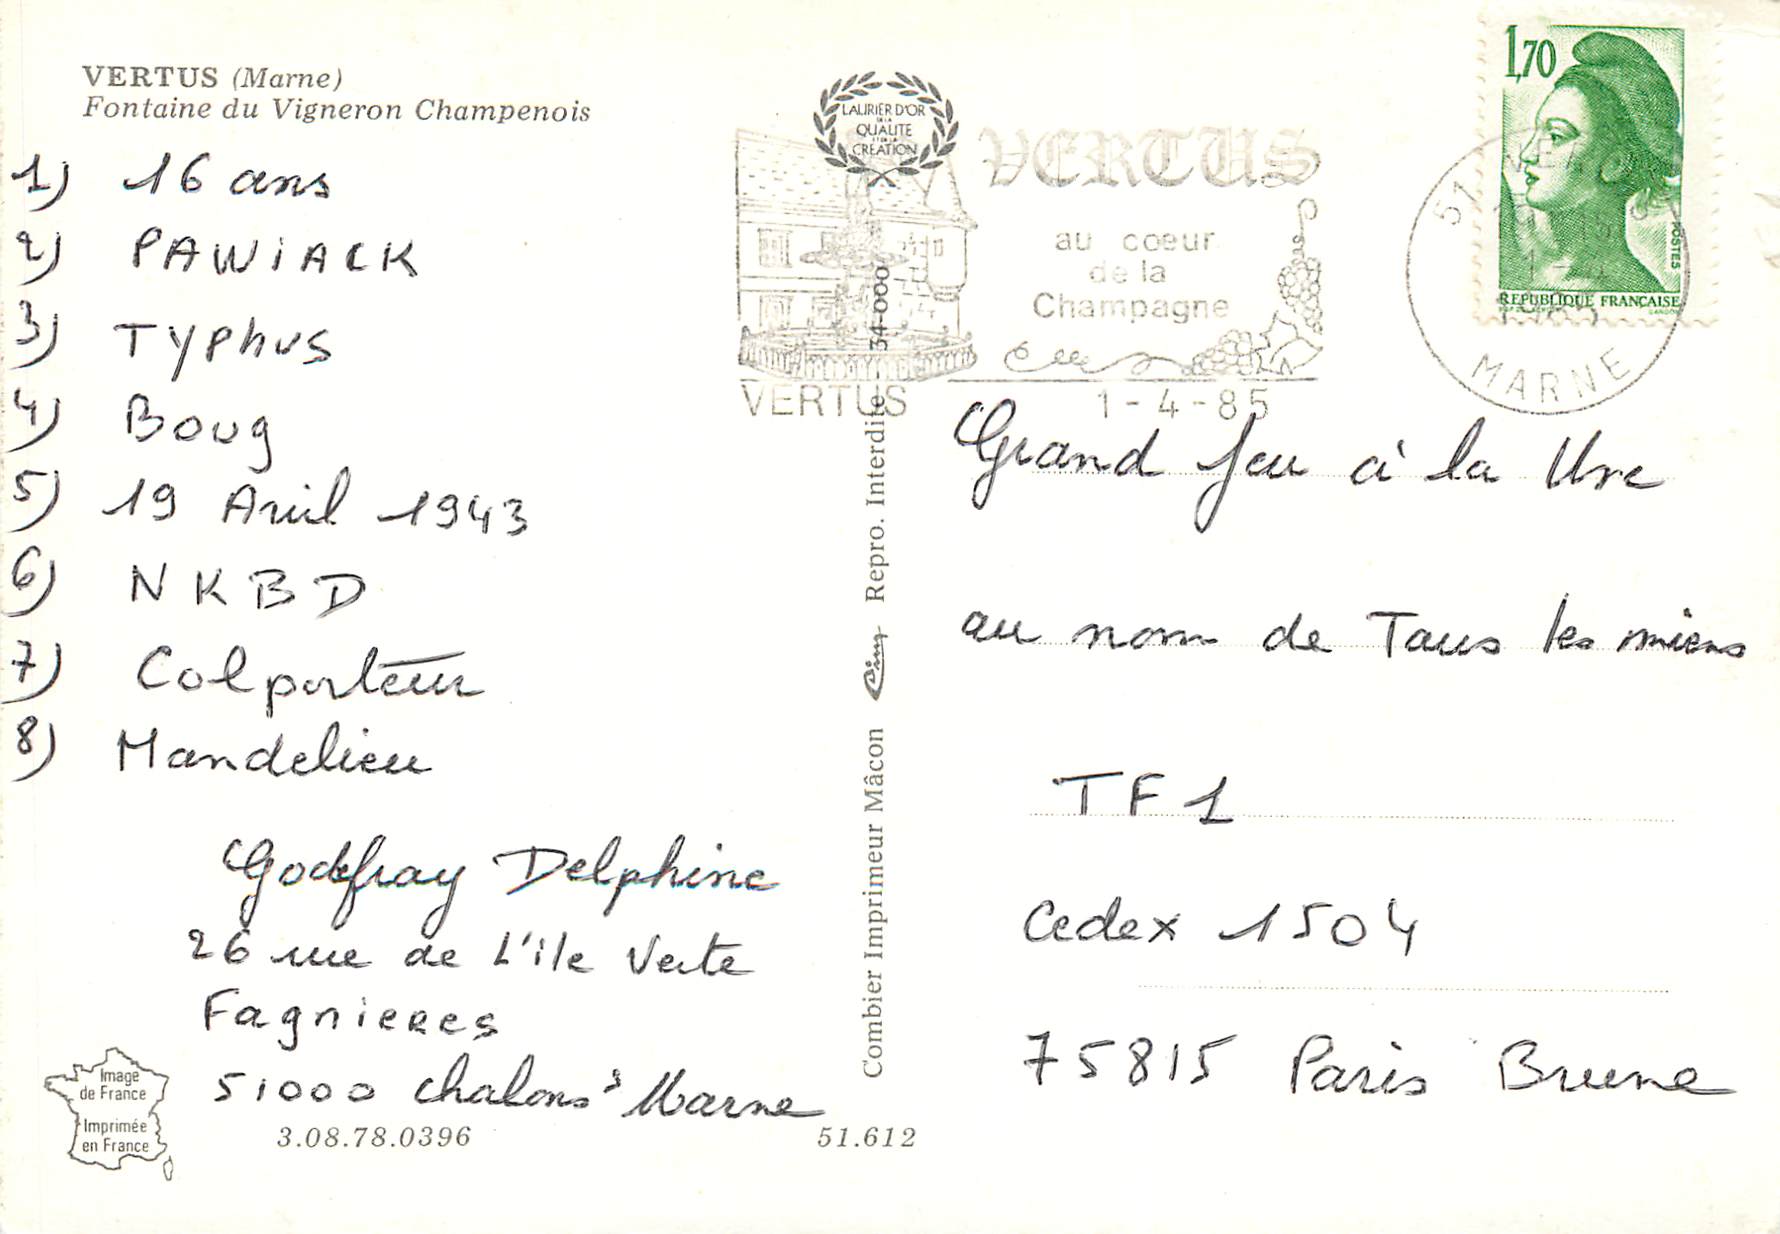 VERTUS (Marne)
Fontaine du Vigneron Champenois
1) 16 ans
2) PAWIACK
3) Typhus
4) Boug
5) 19 Avril 1943
6) NKBD
7) Colporteur
8) Mandelieu
Godefray Delphine
26 rue de L'ile Verte
Fagnieres
51000 chalons s Marne
Image
de France
Imprimée
en France
3.08.78.0396
51.612
LAURIER D'OR
DE LA
QUALITE
ET DE LA
CREATION
Combier Imprimeur Mâcon Cim Repro. Interdite 34-000
VERTUS
au coeur
de la
Champagne
VERTUS
1-4-85
51 VERTUS
MARNE
1,70
POSTES
REPUBLIQUE FRANÇAISE
GANDON
Grand Jeu à la Une
au nom de Tous les miens
TF1
Cedex 1504
75815 Paris Brune